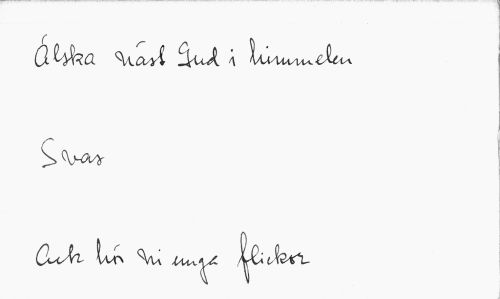 Älska näst Gud i himmelen
Svar
Ack hör ni unga flickor